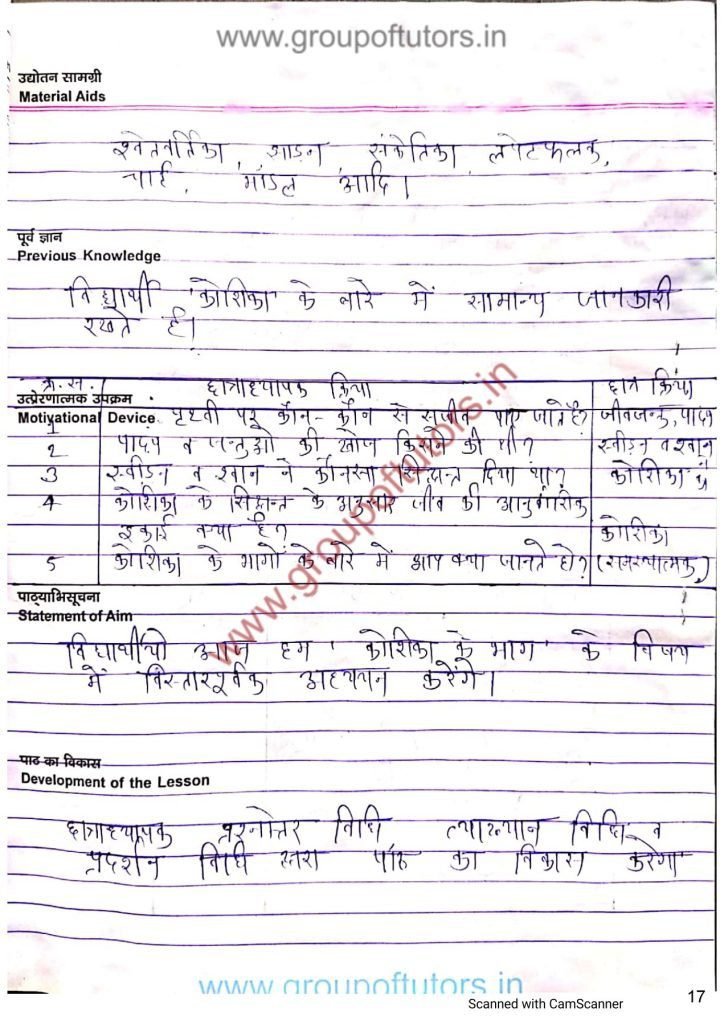 www.groupoftutors.in
उद्योतन सामग्री
Material Aids
श्वेतवर्तिका, झाडन, संकेतिका, लपेटफलक,
चार्ट, मॉडल आदि।
पूर्व ज्ञान
Previous Knowledge
विद्यार्थी 'कोशिका' के बारे में सामान्य जानकारी
रखते हैं।
क्र.स. छात्राध्यापक क्रिया छात्र क्रिया
उत्प्रेरणात्मक उपक्रम
Motivational Device
1 पृथ्वी पर कौन-कौन से सजीव पाए जाते है? जीवजन्तु, पादप
2 पादप व जन्तुओ की खोज किसने की थी? श्लीडन व श्वान
3 श्लीडन व श्वान ने कौनसा सिद्धान्त दिया था? कोशिका
4 कोशिका के सिद्धान्त के अनुसार जीव की आनुवांशिक
इकाई क्या है? कोशिका
5 कोशिका के भागों के बारे में आप क्या जानते हो? (समस्यात्मक)
www.groupoftutors.in
पाठ्याभिसूचना
Statement of Aim
विद्यार्थीयो आज हम 'कोशिका के भाग' के विषय
में विस्तारपूर्वक अध्ययन करेंगे।
पाठ का विकास
Development of the Lesson
छात्राध्यापक प्रश्नोत्तर विधि व्याख्यान विधि व
प्रदर्शन विधि द्वारा पाठ का विकास करेगा
www.groupoftutors.in
Scanned with CamScanner
17